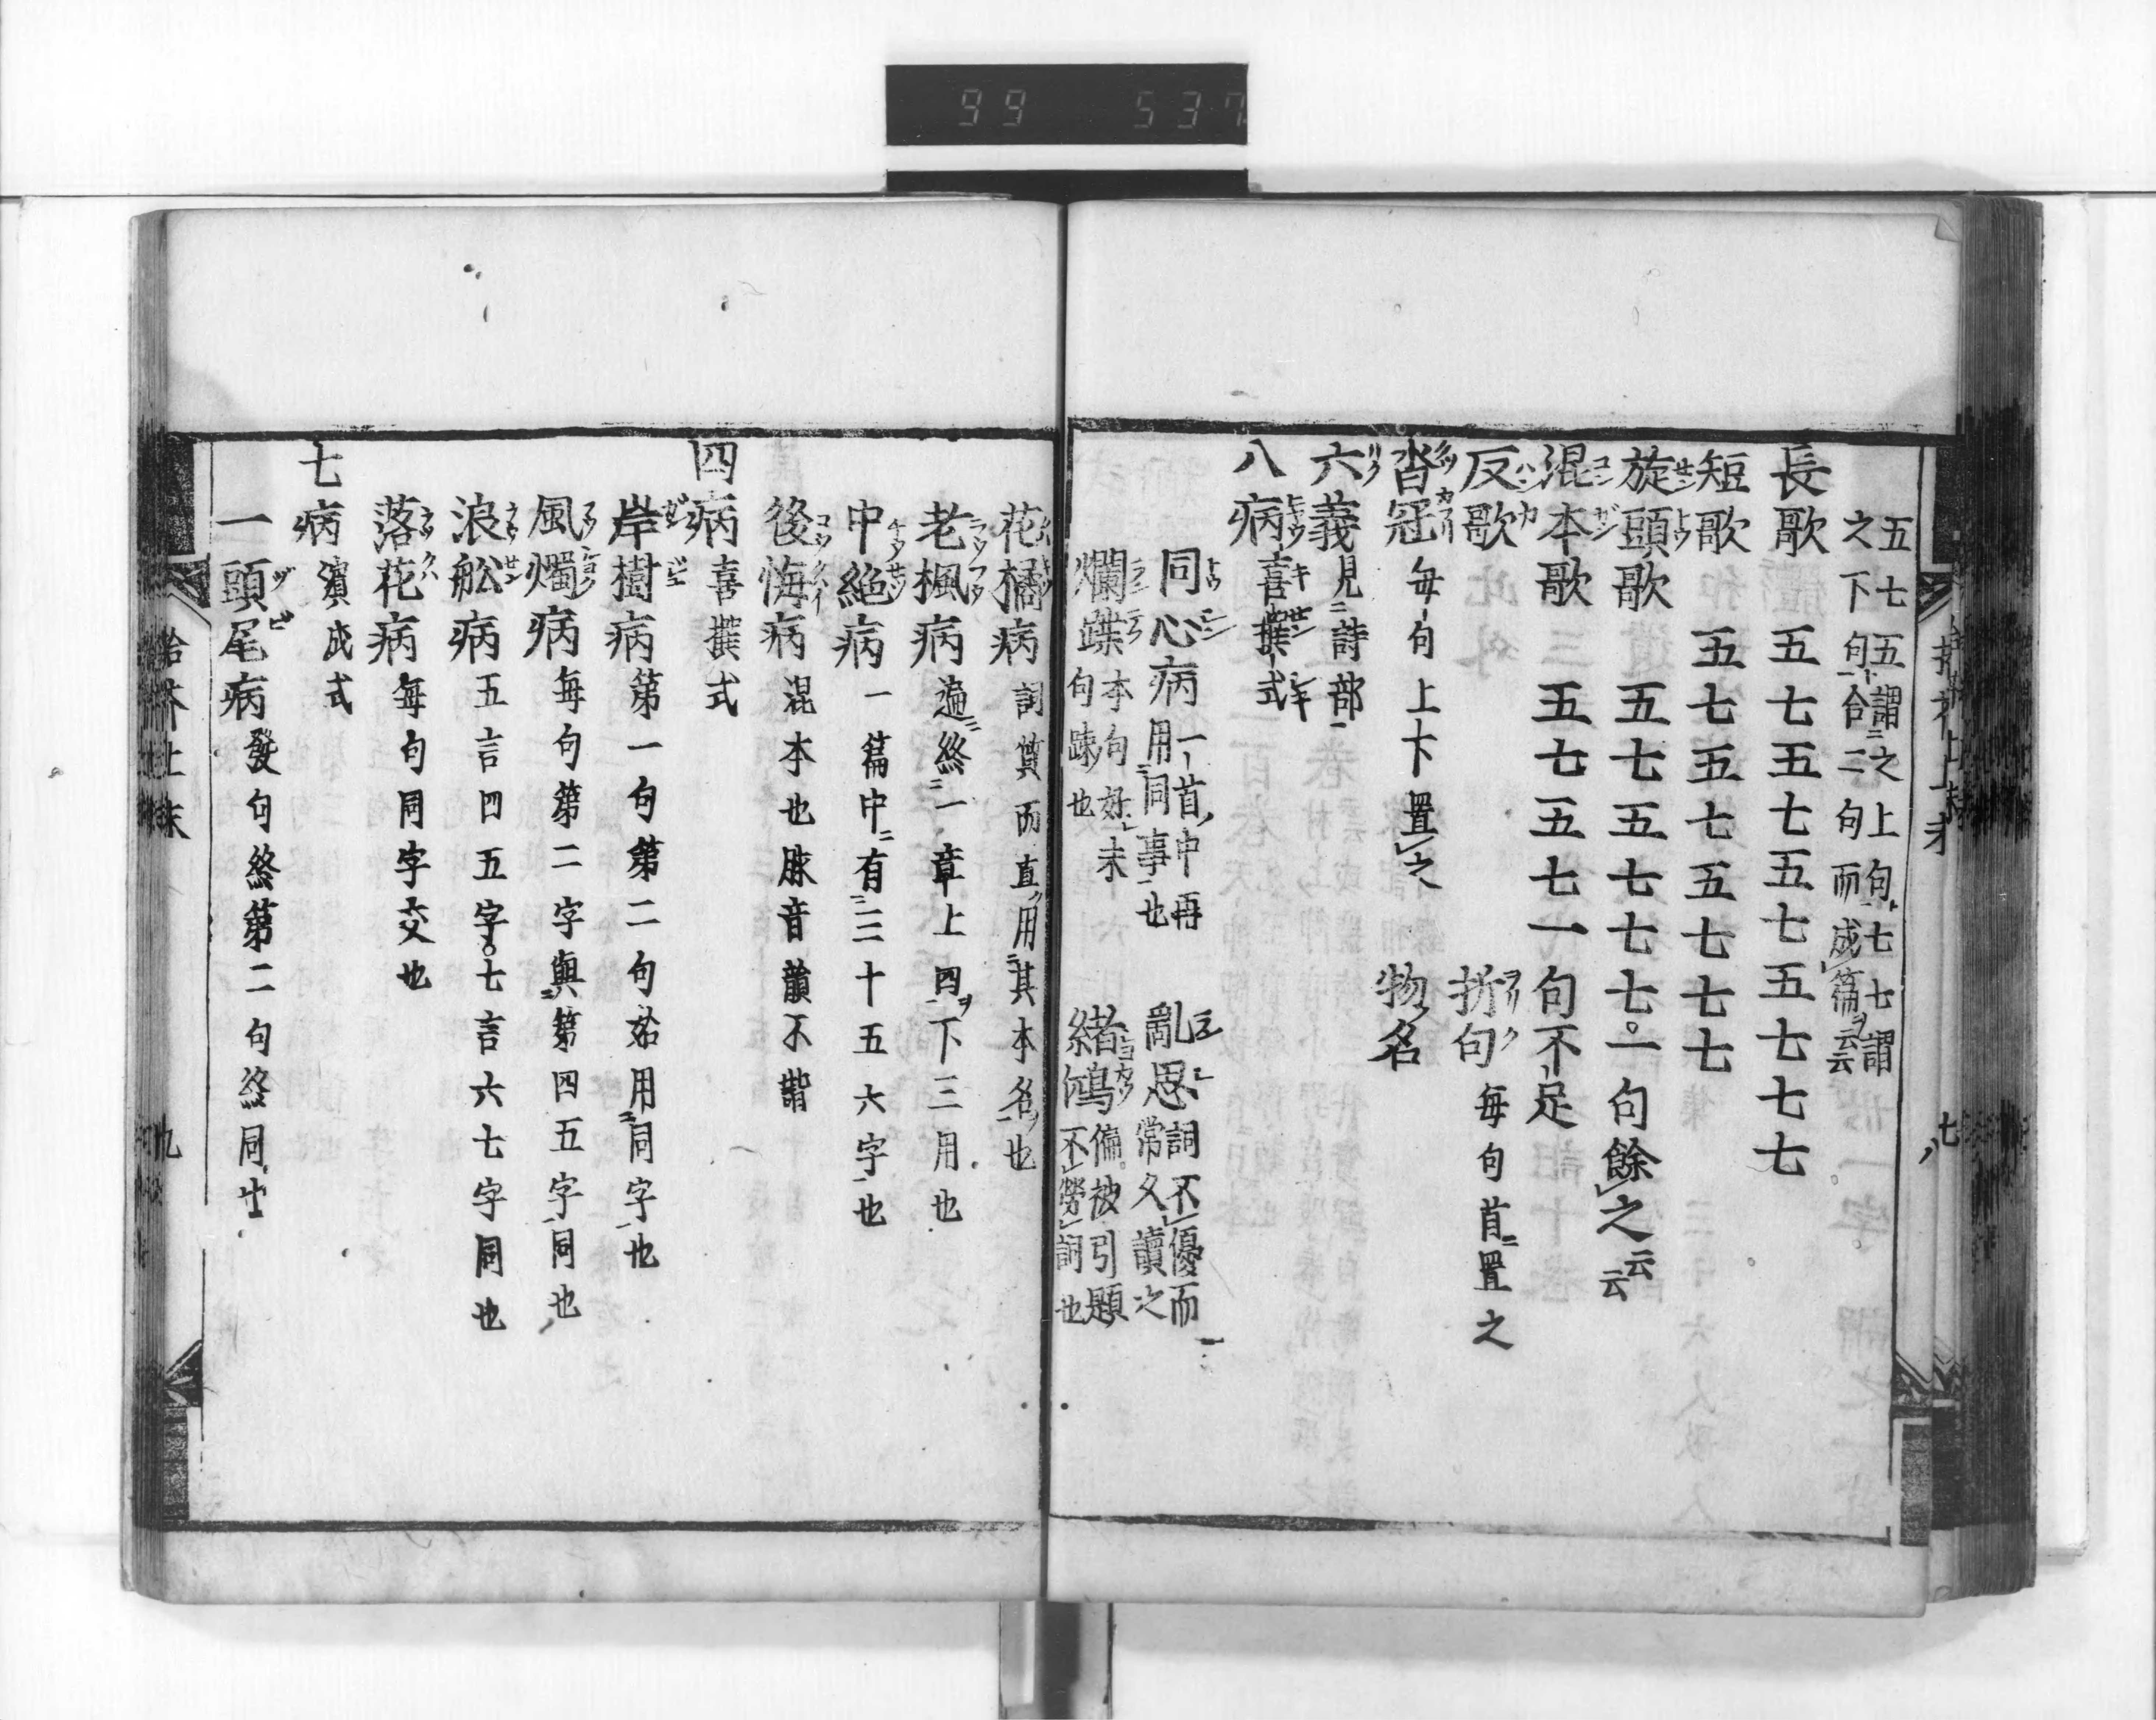 99 537
五七五謂之上句七七謂
之下句合二句而成篇云云
長歌 五七五七五七五七七七
短歌 五七五七五七七七
旋頭歌 五七五七七七一句餘之云云
混本歌 五七五七一句不足
反歌 折句 每句首置之
沓冠 每句上下置之 物名
六義 見詩部
八病 喜撰式
同心病 一首中再用同事也 亂思 詞不優而常久讀之
爛蹀 本句好末句疎也 緒鴻 偏被引題不勞詞也
花橘病 詞質而直用其本名也
老楓病 遍終一章上四下三用也
中絶病 一篇中有三十五六字也
後悔病 混本也脉音韻不諧
四病 喜撰式
岸樹病 第一句第二句始用同字也
風燭病 每句第二字與第四五字同也
浪舩病 五言四五字七言六七字同也
落花病 每句同字交也
七病 濱成式
一頭尾病 發句終第二句終同字
拾芥上末 九